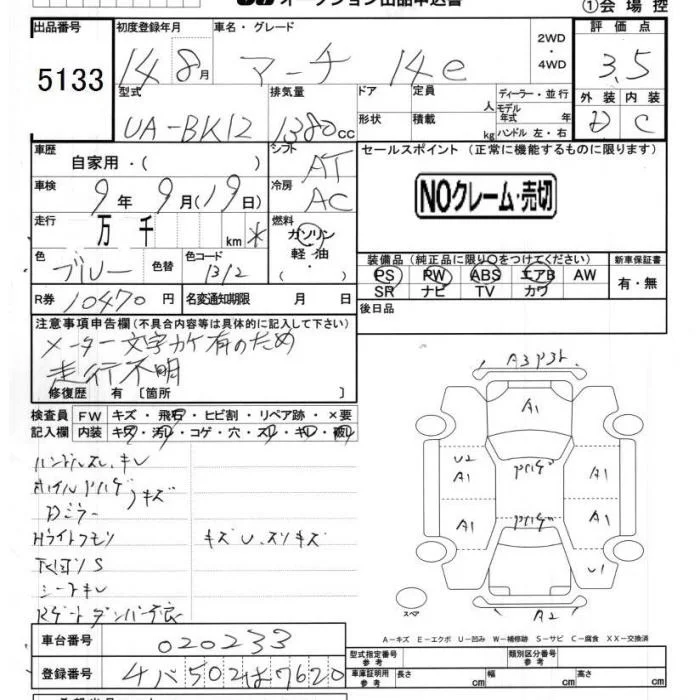 オークション出品申込書
①会場控
出品番号 初度登録年月 車名・グレード 2WD・4WD 評価点
5133 14 8月 マーチ 14e 3.5
型式 排気量 ドア 定員 人 ディーラー・並行 外装 内装
UA-BK12 1380cc 形状 積載 kg モデル年式 年 ハンドル 左・右 D C
車歴 自家用・( ) シフト AT セールスポイント (正常に機能するものに限ります)
車検 9年 9月(19日) 冷房 AC NOクレーム・売切
走行 万 千 km * 燃料 ガソリン 軽・油 ( ・ )
装備品(純正品に限り○をつけてください) 新車保証書
色 ブルー 色替 色コード B12 PS PW ABS エアB AW 有・無
SR ナビ TV カワ
R券 10470円 名変通知期限 月 日 後日品
注意事項申告欄(不具合内容等は具体的に記入して下さい)
メーター文字カケ有のため
走行不明
修復歴 有 〔箇所 〕
検査員 FW キズ・飛石・ヒビ割・リペア跡・×要
記入欄 内装 キズ・汚レ・コゲ・穴・スレ・キレ・破レ
ハンドルスレ、キレ
キズ
Dミラー
キズU、スリキズ
シートキレ
Rゲートダンパー不良
A3P3
A1
U2
A1 A1
A1 A1
U1
スペア
A2
A-キズ E-エクボ U-凹み W-補修跡 S-サビ C-腐食 XX-交換済
車台番号 020233 型式指定番号 参考 類別区分番号 参考
登録番号 502 7620 車庫証明用 参考 長さ cm 幅 cm 高さ cm